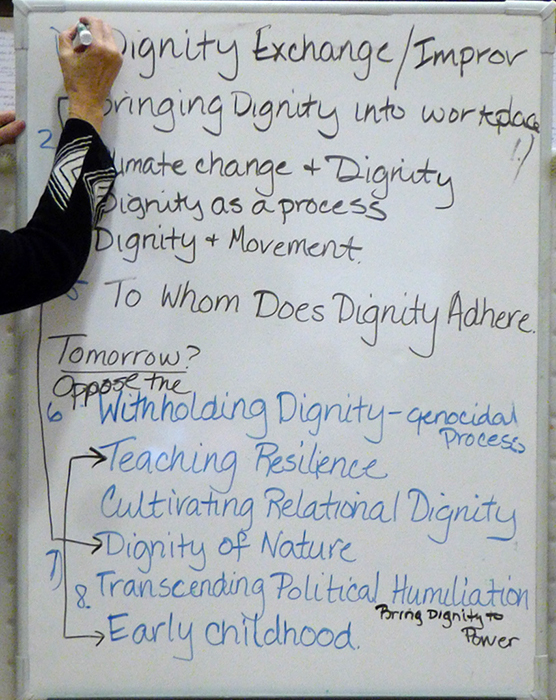 1) Dignity Exchange/Improv
Bringing Dignity into workplace
2 Climate change + Dignity
Dignity as a process
Dignity + Movement.
5 To Whom Does Dignity Adhere.
Tomorrow?
Oppose the
6. Withholding Dignity - genocidal Process
Teaching Resilience
Cultivating Relational Dignity
7) Dignity of Nature
8. Transcending Political Humiliation
Bring Dignity to Power
Early childhood.